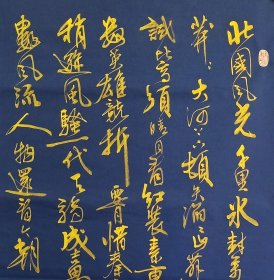 北國風光千里冰封萬
莽〻大河上下頓失滔〻山舞
試比高須晴日看紅裝素裹
數英雄競折腰惜秦
稍遜風騷一代天驕成吉思
數風流人物還看今朝